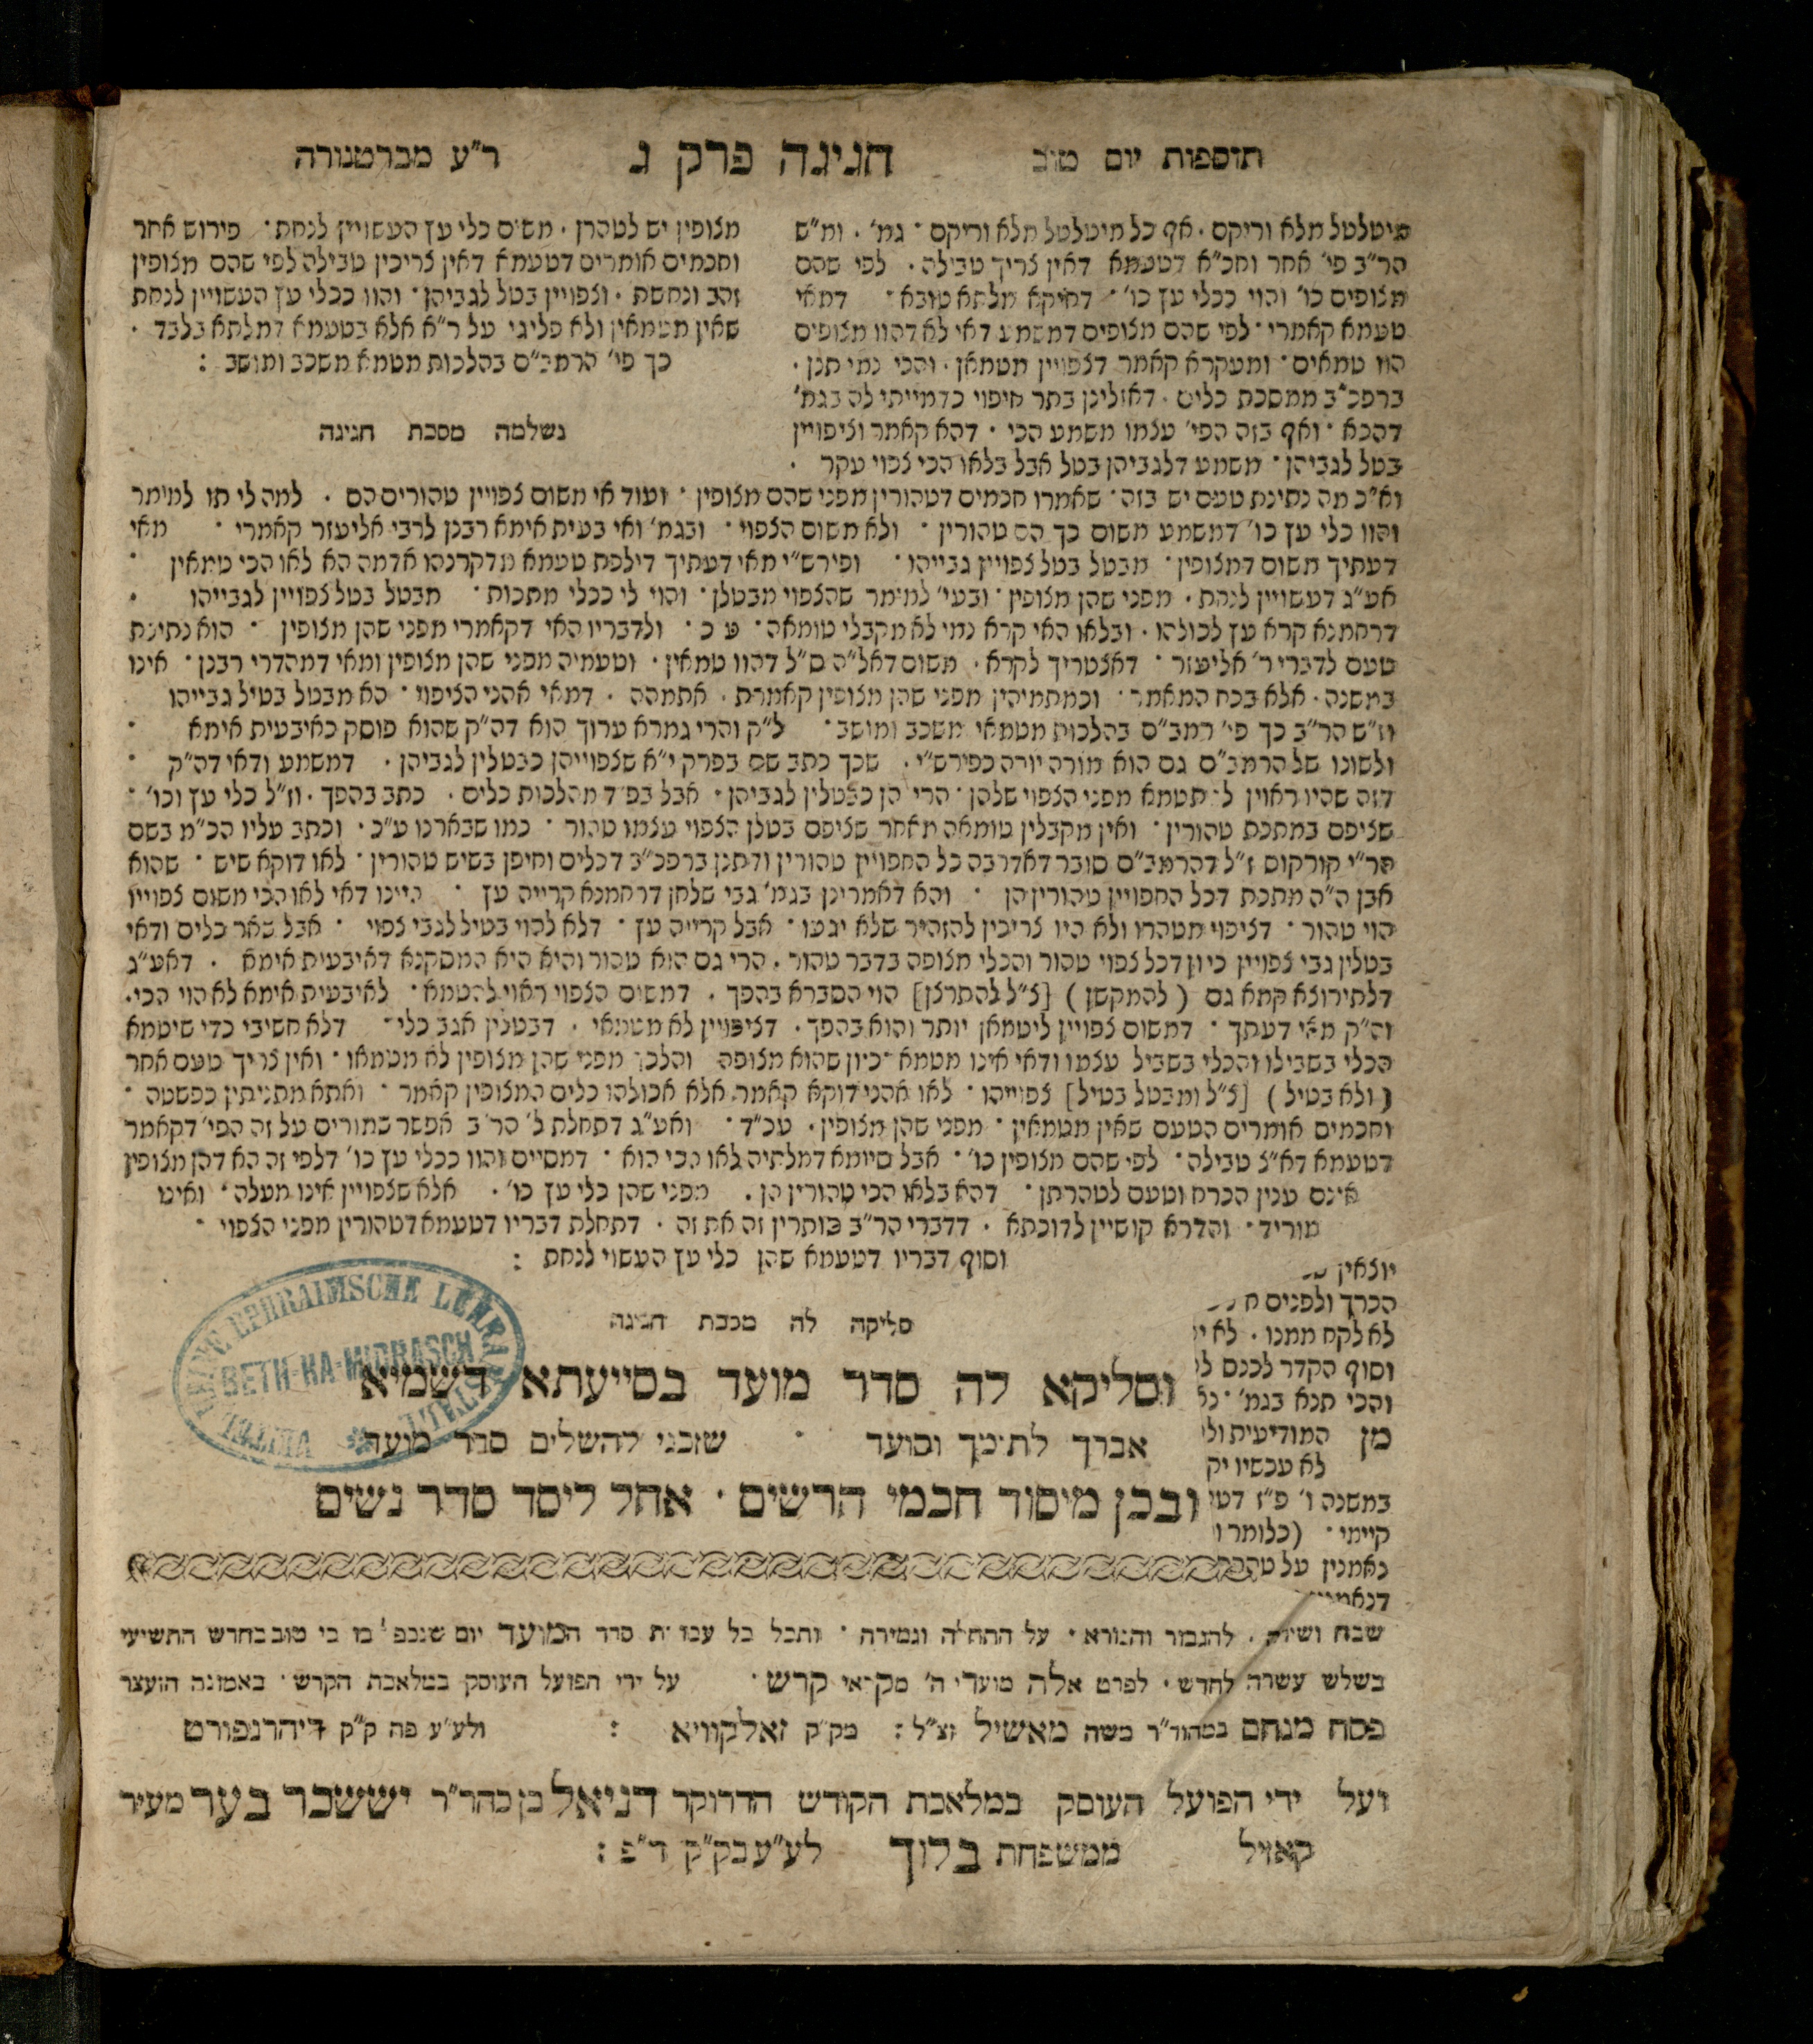 תוספות יום טוב
חגיגה פרק ג
ר"ע מברטנורה
מיטלטל מלא וריקם · אף כל מיטלטל מלא וריקם · גמ' · ומ"ש
הר"ב פי' אחר וחכ"א דטעמא דאין צריך טבילה · לפי שהם
מצופים כו' והוי ככלי עץ כו' · דמאי
טעמא קאמרי · לפי שהם מצופים דמשמע דאי לא דהוו מצופים
הוו טמאים · ומעקרא קאמר דצפויין מטמאן · והכי נמי תנן ·
ברפכ"ב ממסכת כלים · דאזלינן בתר חיפוי כדמייתי לה בגמ'
דהכא · ואף בזה הפי' עצמו משמע הכי · דהא קאמר וציפויין
בטל לגביהן · משמע דלגביהן בטל אבל בלאו הכי צפוי עקר ·
מצופין יש לטהרן · משום כלי עץ העשויין לנחת · פירוש אחר
וחכמים אומרים דטעמא דאין צריכין טבילה לפי שהם מצופין
זהב ונחשת · וצפויין בטל לגביהן · והוו ככלי עץ העשויין לנחת
שאין מטמאין ולא פליגי על ר"א אלא בטעמא דמלתא בלבד ·
כך פי' הרמב"ם בהלכות מטמא משכב ומושב :
נשלמה מסכת חגיגה
וא"כ מה נתינת טעם יש בזה · שאמרו חכמים דטהורין מפני שהם מצופין · ועוד אי משום צפויין טהורים הם · למה לי תו למימר
והוו כלי עץ כו' דמשמע משום כך הם טהורין · ולא משום הצפוי · ובגמ' ואי בעית אימא רבנן לרבי אליעזר קאמרי · מאי
דעתיך משום דמצופין · מבטל בטל צפויין גבייהו · ופירש"י מאי דעתיך דילפת טעמא מדקרנהו אדמה הא לאו הכי טמאין ·
אע"ג דעשויין לנחת · מפני שהן מצופין · ובעי' למימר שהצפוי מבטלן · והוי לי ככלי מתכות · מבטל בטל צפויין לגבייהו ·
דרחמנא קרא עץ לכולהו · ובלאו האי קרא נמי לא מקבלי טומאה · ע כ · ולדבריו האי דקאמרי מפני שהן מצופין · הוא נתינת
טעם לדברי ר' אליעזר · דאצטריך לקרא · משום דאל"ה ס"ל דהוו טמאין · וטעמיה מפני שהן מצופין ומאי דמהדרי רבנן · אינו
במשנה · אלא בכח המאמר · וכמתמיהין מפני שהן מצופין קאמרת · אתמהה · דמאי אהני הציפוי · הא מבטל בטיל גבייהו
וז"ש הר"ב כך פי' רמב"ם בהלכות מטמאי משכב ומושב · ל"ק והרי גמרא ערוך הוא דה"ק שהוא פוסק כאיבעית אימא ·
ולשונו של הרמב"ם גם הוא מורה יורה כפירש"י · שכך כתב שם בפרק י"א שצפוייהן כבטלין לגביהן · דמשמע ודאי דה"ק ·
דזה שהיו ראוין לטמא מפני הצפוי שלהן · הרי הן כבטלין לגביהן · אבל בפ"ד מהלכות כלים · כתב בהפך · וז"ל כלי עץ וכו' ·
שציפם במתכת טהורין · ואין מקבלין טומאה מאחר שציפם בטלן הצפוי עצמו טהור · כמו שבארנו ע"כ · וכתב עליו הכ"מ בשם
הר"י קורקוס ז"ל דהרמב"ם סובר דאדרבה כל המפויין טהורין ודתנן ברפכ"ב דכלים וחיפן בשיש טהורין · לאו דוקא שיש · שהוא
אבן ה"ה מתכת דכל החפויין טהורין הן · והא דאמרינן בגמ' גבי שלחן דרחמנא קרייה עץ · היינו דאי לאו הכי משום צפוייו
הוי טהור · דציפוי מטהרו ולא היו צריכין להזהיר שלא יגעו · אבל קרייה עץ · דלא להוי בטיל לגבי צפוי · אבל שאר כלים ודאי
בטלין גבי צפויין כיון דכל צפוי טהור והכלי מצופה בדבר טהור · הרי גם הוא טהור והיא היא המסקנא דאיבעית אימא · דאע"ג
דלתירוצא קמא גם ( להמקשן ) [צ"ל להתרצן] הוי הסברא בהפך · דמשום הצפוי ראוי להטמא · לאיבעית אימא לא הוי הכי ·
וה"ק מאי דעתך · דמשום צפויין ליטמאן יותר והוא בהפך · דציפויין לא מטמאי · דבטלין אגב כלי · דלא חשיבי כדי שיטמא
הכלי בשבילו והכלי בשביל עצמו ודאי אינו מטמא · כיון שהוא מצופה והלכך מפני שהן מצופין לא מטמאו · ואין צריך טעם אחר
( ולא בטיל ) [צ"ל ומבטל בטיל] צפוייהו · לאו אהני דוקא קאמר אלא אכולהו כלים המצופין קאמר · ואתא מתניתין כפשטה ·
וחכמים אומרים הטעם שאין מטמאין · מפני שהן מצופין · עכ"ד · ואע"ג דתחלת ל' הר"ב אפשר שתורים על זה הפי' דקאמר
דטעמא דא"צ טבילה · לפי שהם מצופין כו' · אבל סיומא דמלתיה לאו הכי הוא · דמסיים והוו ככלי עץ כו' דלפי זה הא דהן מצופין
אינם ענין הכרח וטעם לטהרתן · דהא בלאו הכי טהורין הן · מפני שהן כלי עץ כו' · אלא שצפויין אינו מעלה · ואינו
מוריד · והדרא קושיין לדוכתא · דדברי הר"ב סותרין זה את זה · דתחלת דבריו דטעמא דטהורין מפני הצפוי ·
וסוף דבריו דטעמא שהן כלי עץ העשוי לנחת :
יוצאין
הכרך ולפנים
לא לקח ממנו · לא
וסוף הקדר לכנס
והכי תנא בגמ' ·
מן המודיעית
לא עכשיו
במשנה ו' פ"ז
קיימי · (כלומר
נאמנין על
סליקה לה מסכת חגיגה
וסליקא לה סדר מועד בסייעתא דשמיא
אברך לתומך וסועד · שזכני להשלים סדר מועד
ובכן מיסוד חכמי הרשים · אחל ליסד סדר נשים
שבח ושירה · להגבור והנורא · על התחלה וגמירה · ותכל כל עבודת סדר המועד יום שנכפל בו כי טוב בחדש התשיעי
בשלש עשרה לחדש · לפרט אלה מועדי ה' מקראי קדש · על ידי הפועל העוסק במלאכת הקדש · באמונה הזעצר
פסח מנחם במהור"ר משה מאשיל זצ"ל : מק"ק זאלקוויא : ולע"ע פה ק"ק דיהרנפורט
ועל ידי הפועל העוסק במלאכת הקודש הדרוקר דניאל בן כהר"ר יששכר בער מעיר
קאזיל ממשפחת בלוך לע"ע בק"ק ד"פ :
VEITEL HEINE EPHRAIMSCHE LEHRANSTALT
BETH-HA-MIDRASCH